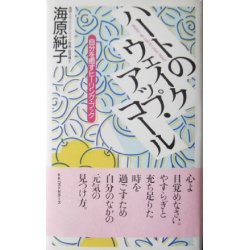 ハートの
ウェイク・
アップ・
コール
自分を癒すヒーリングブック
海原純子
心よ
目覚めなさい。
やすらぎと
充ち足りた
時を
過ごすため
自分のなかの
元気の
見つけ方。
KKベストセラーズ